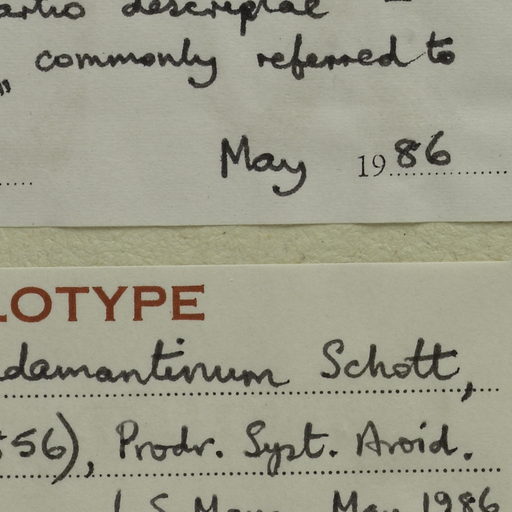 descriptae –
" commonly referred to
May 1986
LOTYPE
damantinum Schott,
56), Prodr. Syst. Aroid.
S. Mayo May 1986